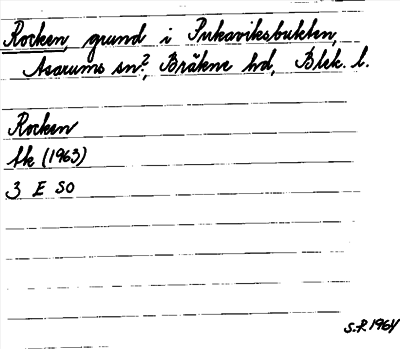 Rocken, grund i Pukaviksbukten,
Asarums sn?, Bräkne hd, Blek. l.
Rocken
Sk (1963)
3 E SO
S.F. 1964